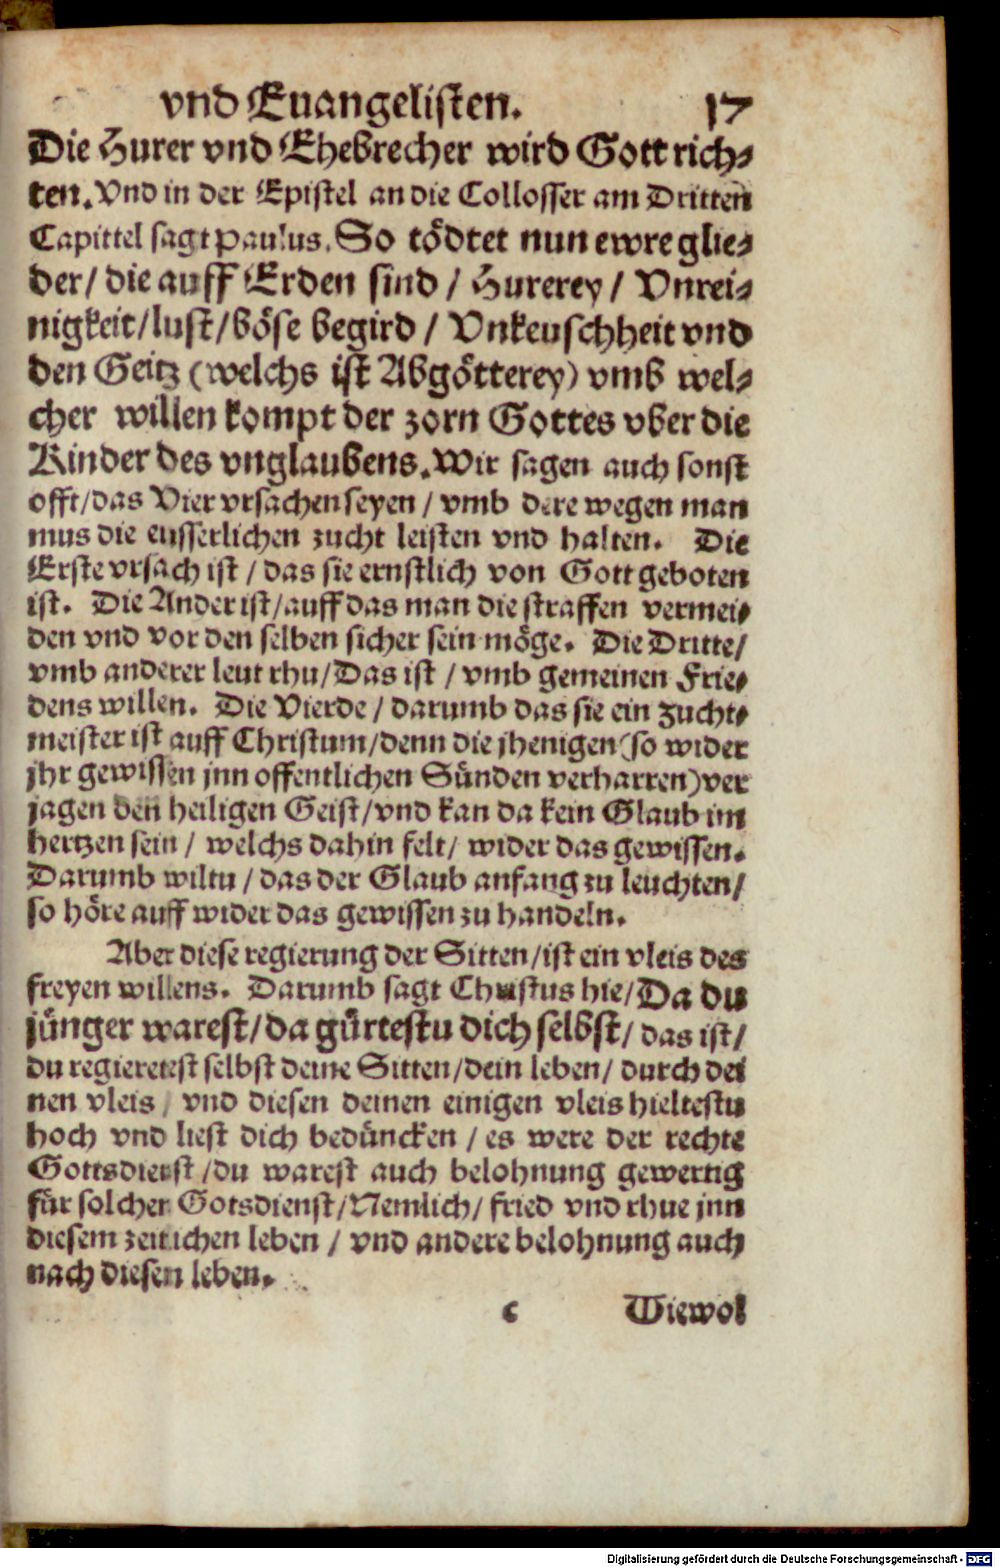 vnd Euangelisten. 17
Die Hurer vnd Ehebrecher wird Gott rich⸗
ten. Vnd in der Epistel an die Collosser am Dritten
Capittel sagt Paulus. So tödtet nun ewre glie⸗
der/ die auff Erden sind / Hurerey / Vnrei⸗
nigkeit/lust/böse begird / Vnkeuschheit vnd
den Geitz (welchs ist Abgötterey) vmb wel⸗
cher willen kompt der zorn Gottes vber die
Kinder des vnglaubens. Wir sagen auch sonst
offt/das Vier vrsachen seyen / vmb dere wegen man
mus die eusserlichen zucht leisten vnd halten. Die
Erste vrsach ist / das sie ernstlich von Gott geboten
ist. Die Ander ist/auff das man die straffen vermei⸗
den vnd vor den selben sicher sein möge. Die Dritte/
vmb anderer leut rhu/Das ist / vmb gemeinen Frie⸗
dens willen. Die Vierde / darumb das sie ein zucht⸗
meister ist auff Christum/denn die jhenigen (so wider
jhr gewissen jnn offentlichen Sünden verharren)ver
jagen den heiligen Geist/vnd kan da kein Glaub im
hertzen sein / welchs dahin felt/ wider das gewissen.
Darumb wiltu / das der Glaub anfang zu leuchten/
so höre auff wider das gewissen zu handeln.
Aber diese regierung der Sitten/ist ein vleis des
freyen willens. Darumb sagt Christus hie/Da du
jünger warest/da gürtestu dich selbst/ das ist/
du regieretest selbst deine Sitten/dein leben/ durch dei
nen vleis / vnd diesen deinen einigen vleis hieltestu
hoch vnd liest dich bedüncken / es were der rechte
Gottsdienst /du warest auch belohnung gewertig
für solchen Gotsdienst/Nemlich/ fried vnd rhue jnn
diesem zeitlichen leben / vnd andere belohnung auch
nach diesen leben.
c Wiewol
Digitalisierung gefördert durch die Deutsche Forschungsgemeinschaft - DFG